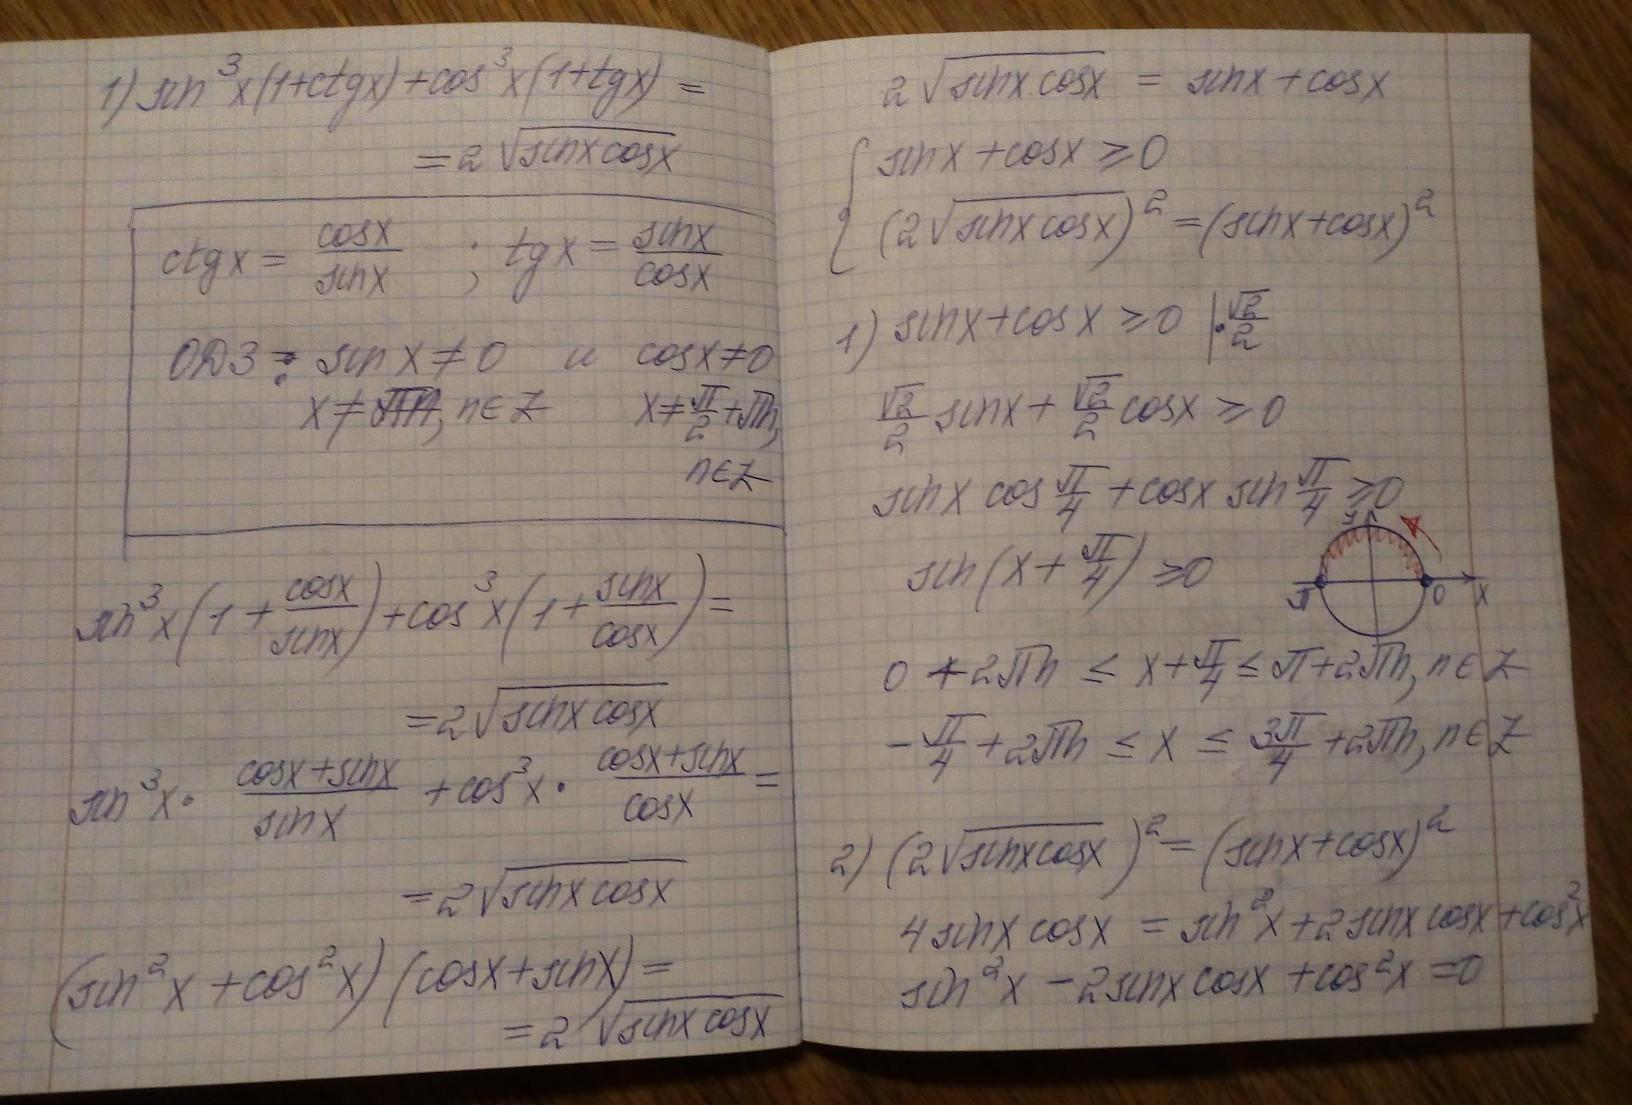 1) sin³x(1+ctgx)+cos³x(1+tgx)=
=2√(sinxcosx)
ctgx = cosx/sinx ; tgx = sinx/cosx
ОДЗ: sinx≠0 и cosx≠0
x≠πn, n∈Z x≠π/2+πn,
n∈Z
sin³x(1+cosx/sinx)+cos³x(1+sinx/cosx)=
=2√(sinxcosx)
sin³x·(cosx+sinx)/sinx +cos³x·(cosx+sinx)/cosx=
=2√(sinxcosx)
(sin²x+cos²x)(cosx+sinx)=
=2√(sinxcosx)
2√(sinxcosx) = sinx+cosx
{ sinx+cosx≥0
{ (2√(sinxcosx))²=(sinx+cosx)²
1) sinx+cosx≥0 |·√2/2
√2/2 sinx+√2/2 cosx≥0
sinx cos π/4 +cosx sin π/4 ≥0
y
sin(x+π/4)≥0
π 0 x
0+2πn ≤ x+π/4 ≤ π+2πn, n∈Z
-π/4+2πn ≤ x ≤ 3π/4+2πn, n∈Z
2) (2√(sinxcosx))²=(sinx+cosx)²
4sinxcosx = sin²x+2sinxcosx+cos²x
sin²x-2sinxcosx+cos²x=0